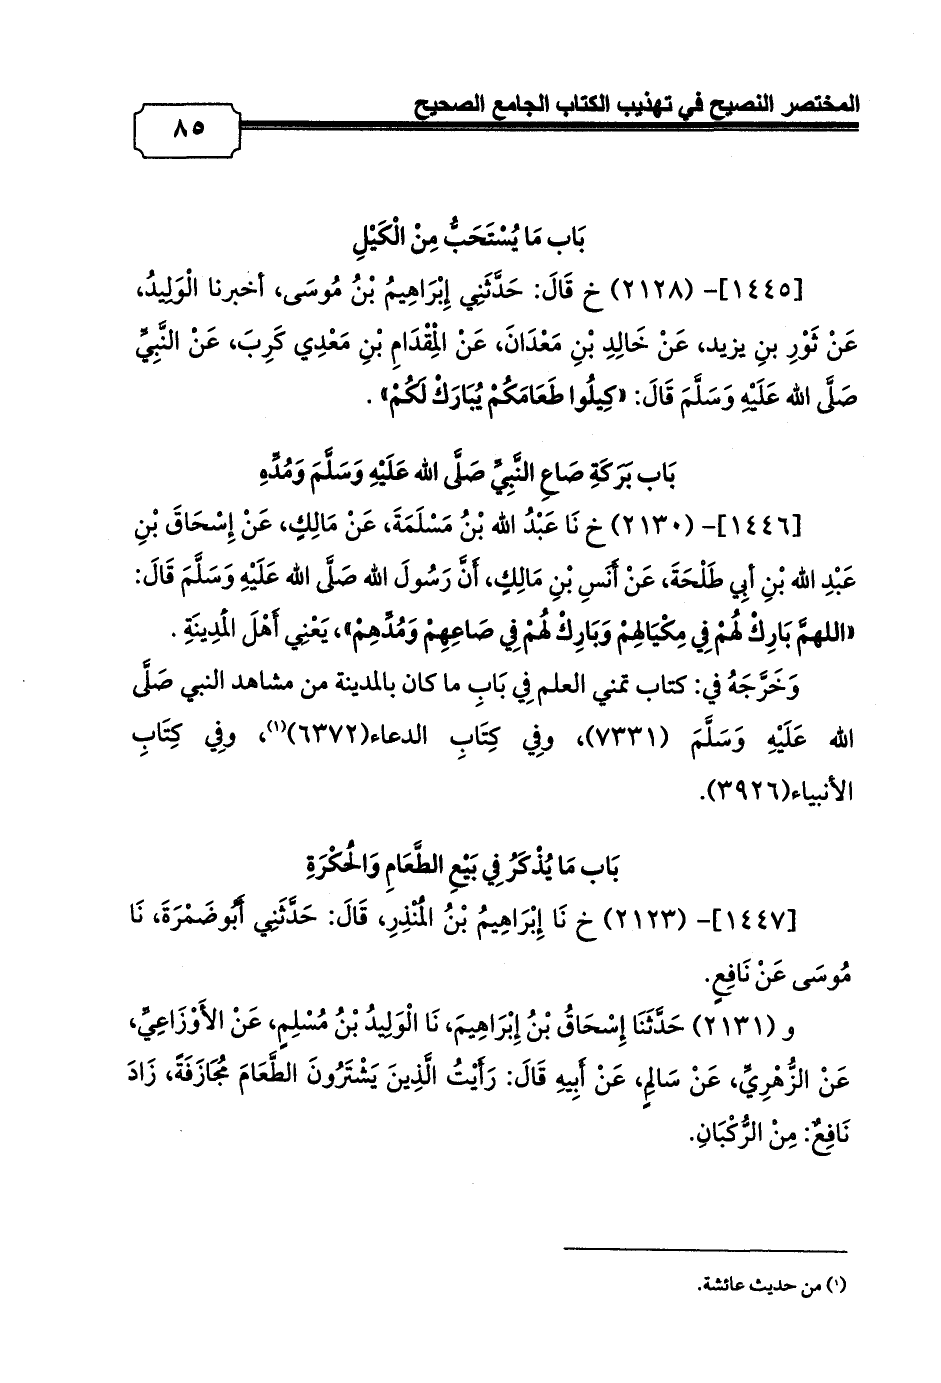 المختصر النصيح في تهذيب الكتاب الجامع الصحيح
٨٥
بَاب مَا يُسْتَحَبُّ مِنْ الْكَيْلِ
[١٤٤٥]- (٢١٢٨) خ قَالَ: حَدَّثَنِي إِبْرَاهِيمُ بْنُ مُوسَى، أخبرنا الْوَلِيدُ،
عَنْ ثَوْرِ بنِ يزيد، عَنْ خَالِدِ بْنِ مَعْدَانَ، عَنْ الْمِقْدَامِ بْنِ مَعْدِي كَرِبَ، عَنْ النَّبِيِّ
صَلَّى الله عَلَيْهِ وَسَلَّمَ قَالَ: «كِيلُوا طَعَامَكُمْ يُبَارَكْ لَكُمْ» .
بَاب بَرَكَةِ صَاعِ النَّبِيِّ صَلَّى الله عَلَيْهِ وَسَلَّمَ وَمُدِّهِ
[١٤٤٦]- (٢١٣٠) خ نَا عَبْدُ الله بْنُ مَسْلَمَةَ، عَنْ مَالِكٍ، عَنْ إِسْحَاقَ بْنِ
عَبْدِ الله بْنِ أبِي طَلْحَةَ، عَنْ أَنَسِ بْنِ مَالِكٍ، أَنَّ رَسُولَ الله صَلَّى الله عَلَيْهِ وَسَلَّمَ قَالَ:
«اللهمَّ بَارِكْ لَهُمْ فِي مِكْيَالِهِمْ وَبَارِكْ لَهُمْ فِي صَاعِهِمْ وَمُدِّهِمْ»، يَعْنِي أَهْلَ الْمَدِينَةِ .
وَخَرَّجَهُ في: كتاب تمني العلم فِي بَابِ ما كان بالمدينة من مشاهد النبي صَلَّى
الله عَلَيْهِ وَسَلَّمَ (٧٣٣١)، وفِي كِتَابِ الدعاء(٦٣٧٢)(١)، وفِي كِتَابِ
الأنبياء(٣٩٢٦).
بَاب مَا يُذْكَرُ فِي بَيْعِ الطَّعَامِ وَالْحُكْرَةِ
[١٤٤٧]- (٢١٢٣) خ نَا إِبْرَاهِيمُ بْنُ الْمُنْذِرِ، قَالَ: حَدَّثَنِي أَبُو ضَمْرَةَ، نَا
مُوسَى عَنْ نَافِعٍ.
و (٢١٣١) حَدَّثَنَا إِسْحَاقُ بْنُ إِبْرَاهِيمَ، نَا الْوَلِيدُ بْنُ مُسْلِمٍ، عَنْ الأَوْزَاعِيِّ،
عَنْ الزُّهْرِيِّ، عَنْ سَالِمٍ، عَنْ أَبِيهِ قَالَ: رَأَيْتُ الَّذِينَ يَشْتَرُونَ الطَّعَامَ مُجَازَفَةً، زَادَ
نَافِعٌ: مِنْ الرُّكْبَانِ.
(١) من حديث عائشة.